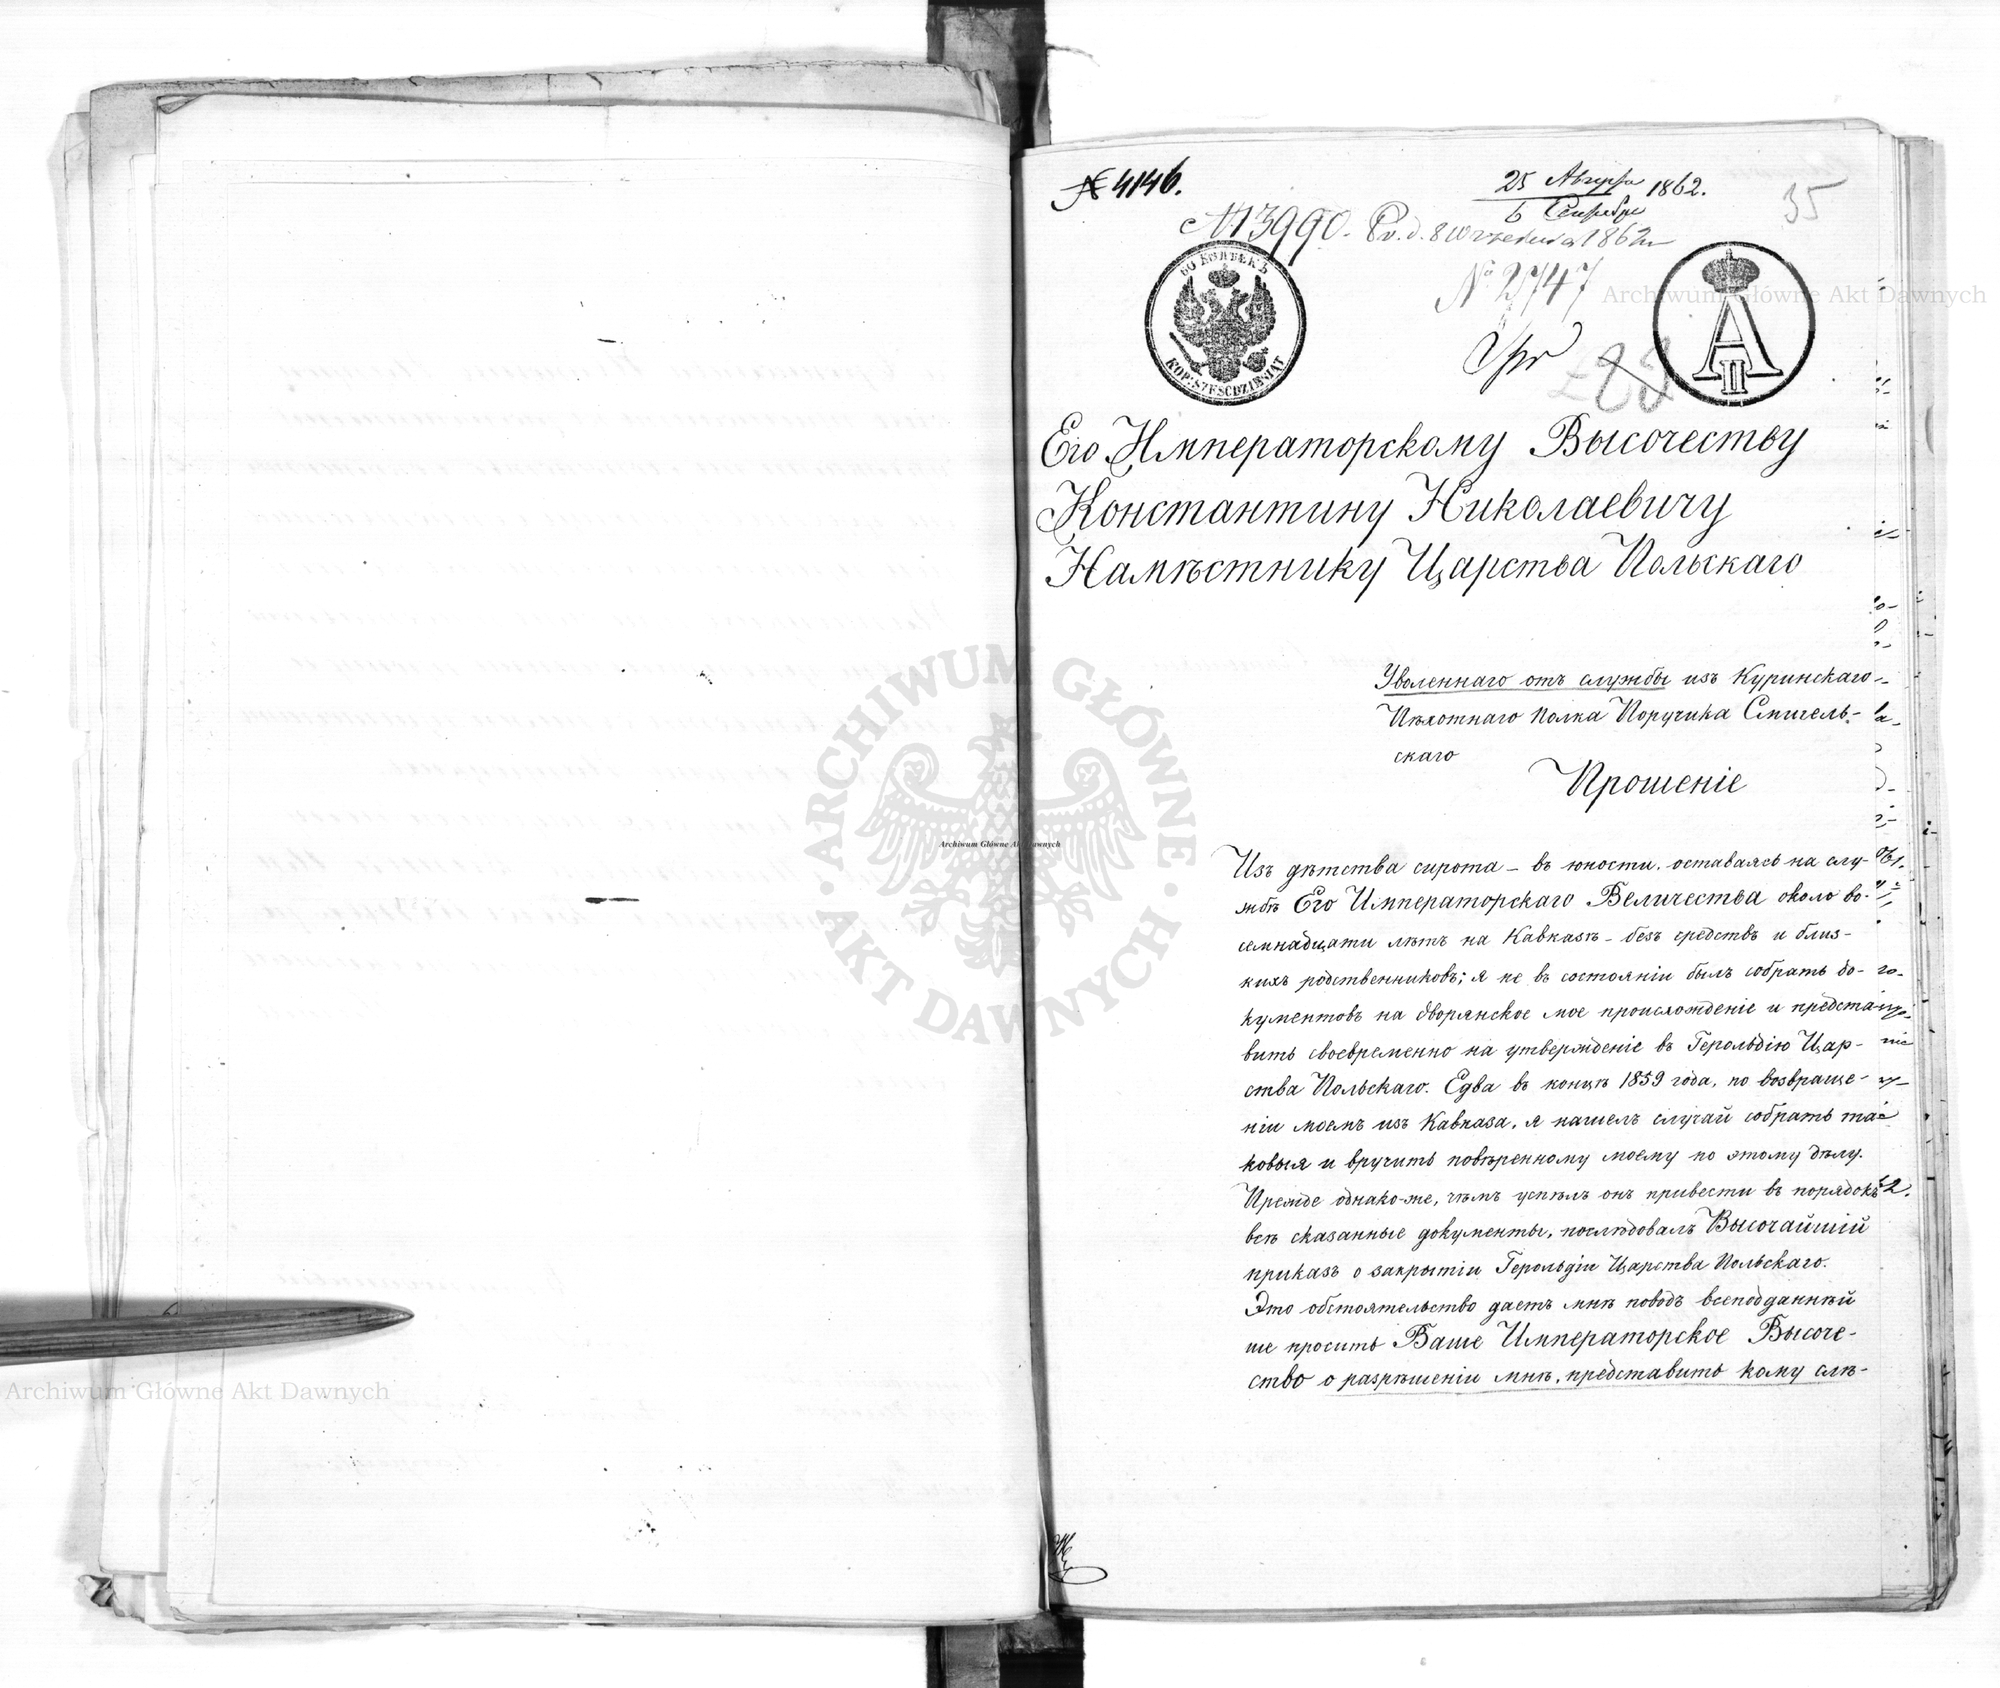 № 4146.
25 Августа 1862.
6 Сентября
35
№ 13990. Pr. d. 8 Września 1862 r.
60 КОПѢЕКЪ
KOP: SZEŚĆDZIESIĄT
№ 2747
А II
Его Императорскому Высочеству
Константину Николаевичу
Намѣстнику Царства Польскаго
Уволеннаго отъ службы изъ Куринскаго
Пѣхотнаго Полка Поручика Смигель-
скаго
Прошеніе
Изъ дѣтства сирота – въ юности, оставаясь на слу-
жбѣ Его Императорскаго Величества около во-
семнадцати лѣтъ на Кавказѣ – безъ средствъ и близ-
кихъ родственниковъ; я не въ состояніи былъ собрать до-
кументовъ на дворянское мое происхожденіе и предста-
вить своевременно на утвержденіе въ Герольдію Цар-
ства Польскаго. Едва въ концѣ 1859 года, по возвраще-
ніи моемъ изъ Кавказа, я нашелъ случай собрать та-
ковыя и вручить повѣренному моему по этому дѣлу.
Прежде однако-же, чѣмъ успѣлъ онъ привести въ порядокъ
всѣ сказанные документы, послѣдовалъ Высочайшій
приказъ о закрытіи Герольдіи Царства Польскаго.
Это обстоятельство даетъ мнѣ поводъ всеподданнѣй
ше просить Ваше Императорское Высоче-
ство о разрѣшеніи мнѣ, представить кому слѣ-
Archiwum Główne Akt Dawnych
ARCHIWUM GŁÓWNE AKT DAWNYCH
Archiwum Główne Akt Dawnych
Archiwum Główne Akt Dawnych